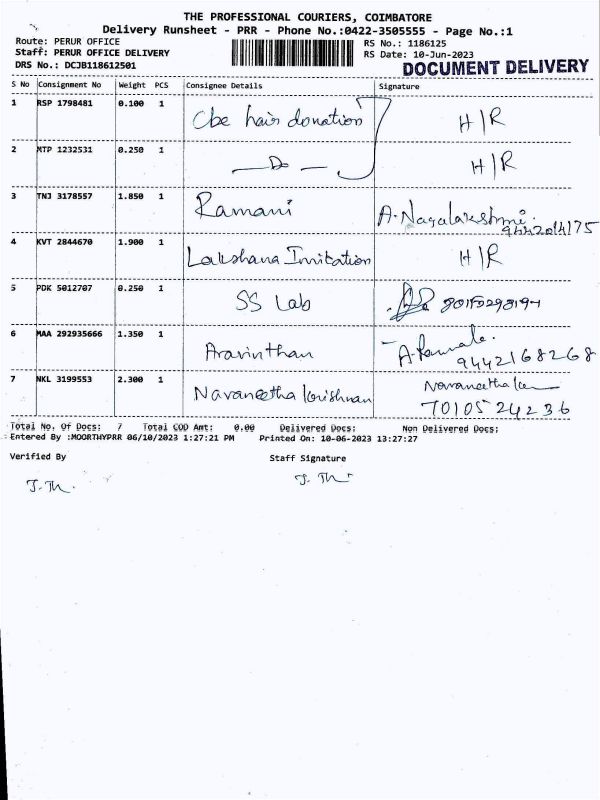 THE PROFESSIONAL COURIERS, COIMBATORE
Delivery Runsheet - PRR - Phone No.:0422-3505555 - Page No.:1
Route: PERUR OFFICE RS No.: 1186125
Staff: PERUR OFFICE DELIVERY RS Date: 10-Jun-2023
DRS No.: DCJB118612501 DOCUMENT DELIVERY
S No Consignment No Weight PCS Consignee Details Signature
1 RSP 1798481 0.100 1 Cbe hair donation H/R
2 MTP 1232531 0.250 1 — Do — H/R
3 TNJ 3178557 1.850 1 Ramani A. Nagalakshmi.
9442014175
4 KVT 2844670 1.900 1 Lakshana Invitation H/R
5 PDK 5012707 0.250 1 SS Lab
6 MAA 292935666 1.350 1 Aravinthan
9442168268
7 NKL 3199553 2.300 1 Navaneetha krishnan Navaneetha
7010524236
Total No. Of Docs: 7 Total COD Amt: 0.00 Delivered Docs: Non Delivered Docs:
Entered By :MOORTHYPRR 06/10/2023 1:27:21 PM Printed On: 10-06-2023 13:27:27
Verified By Staff Signature